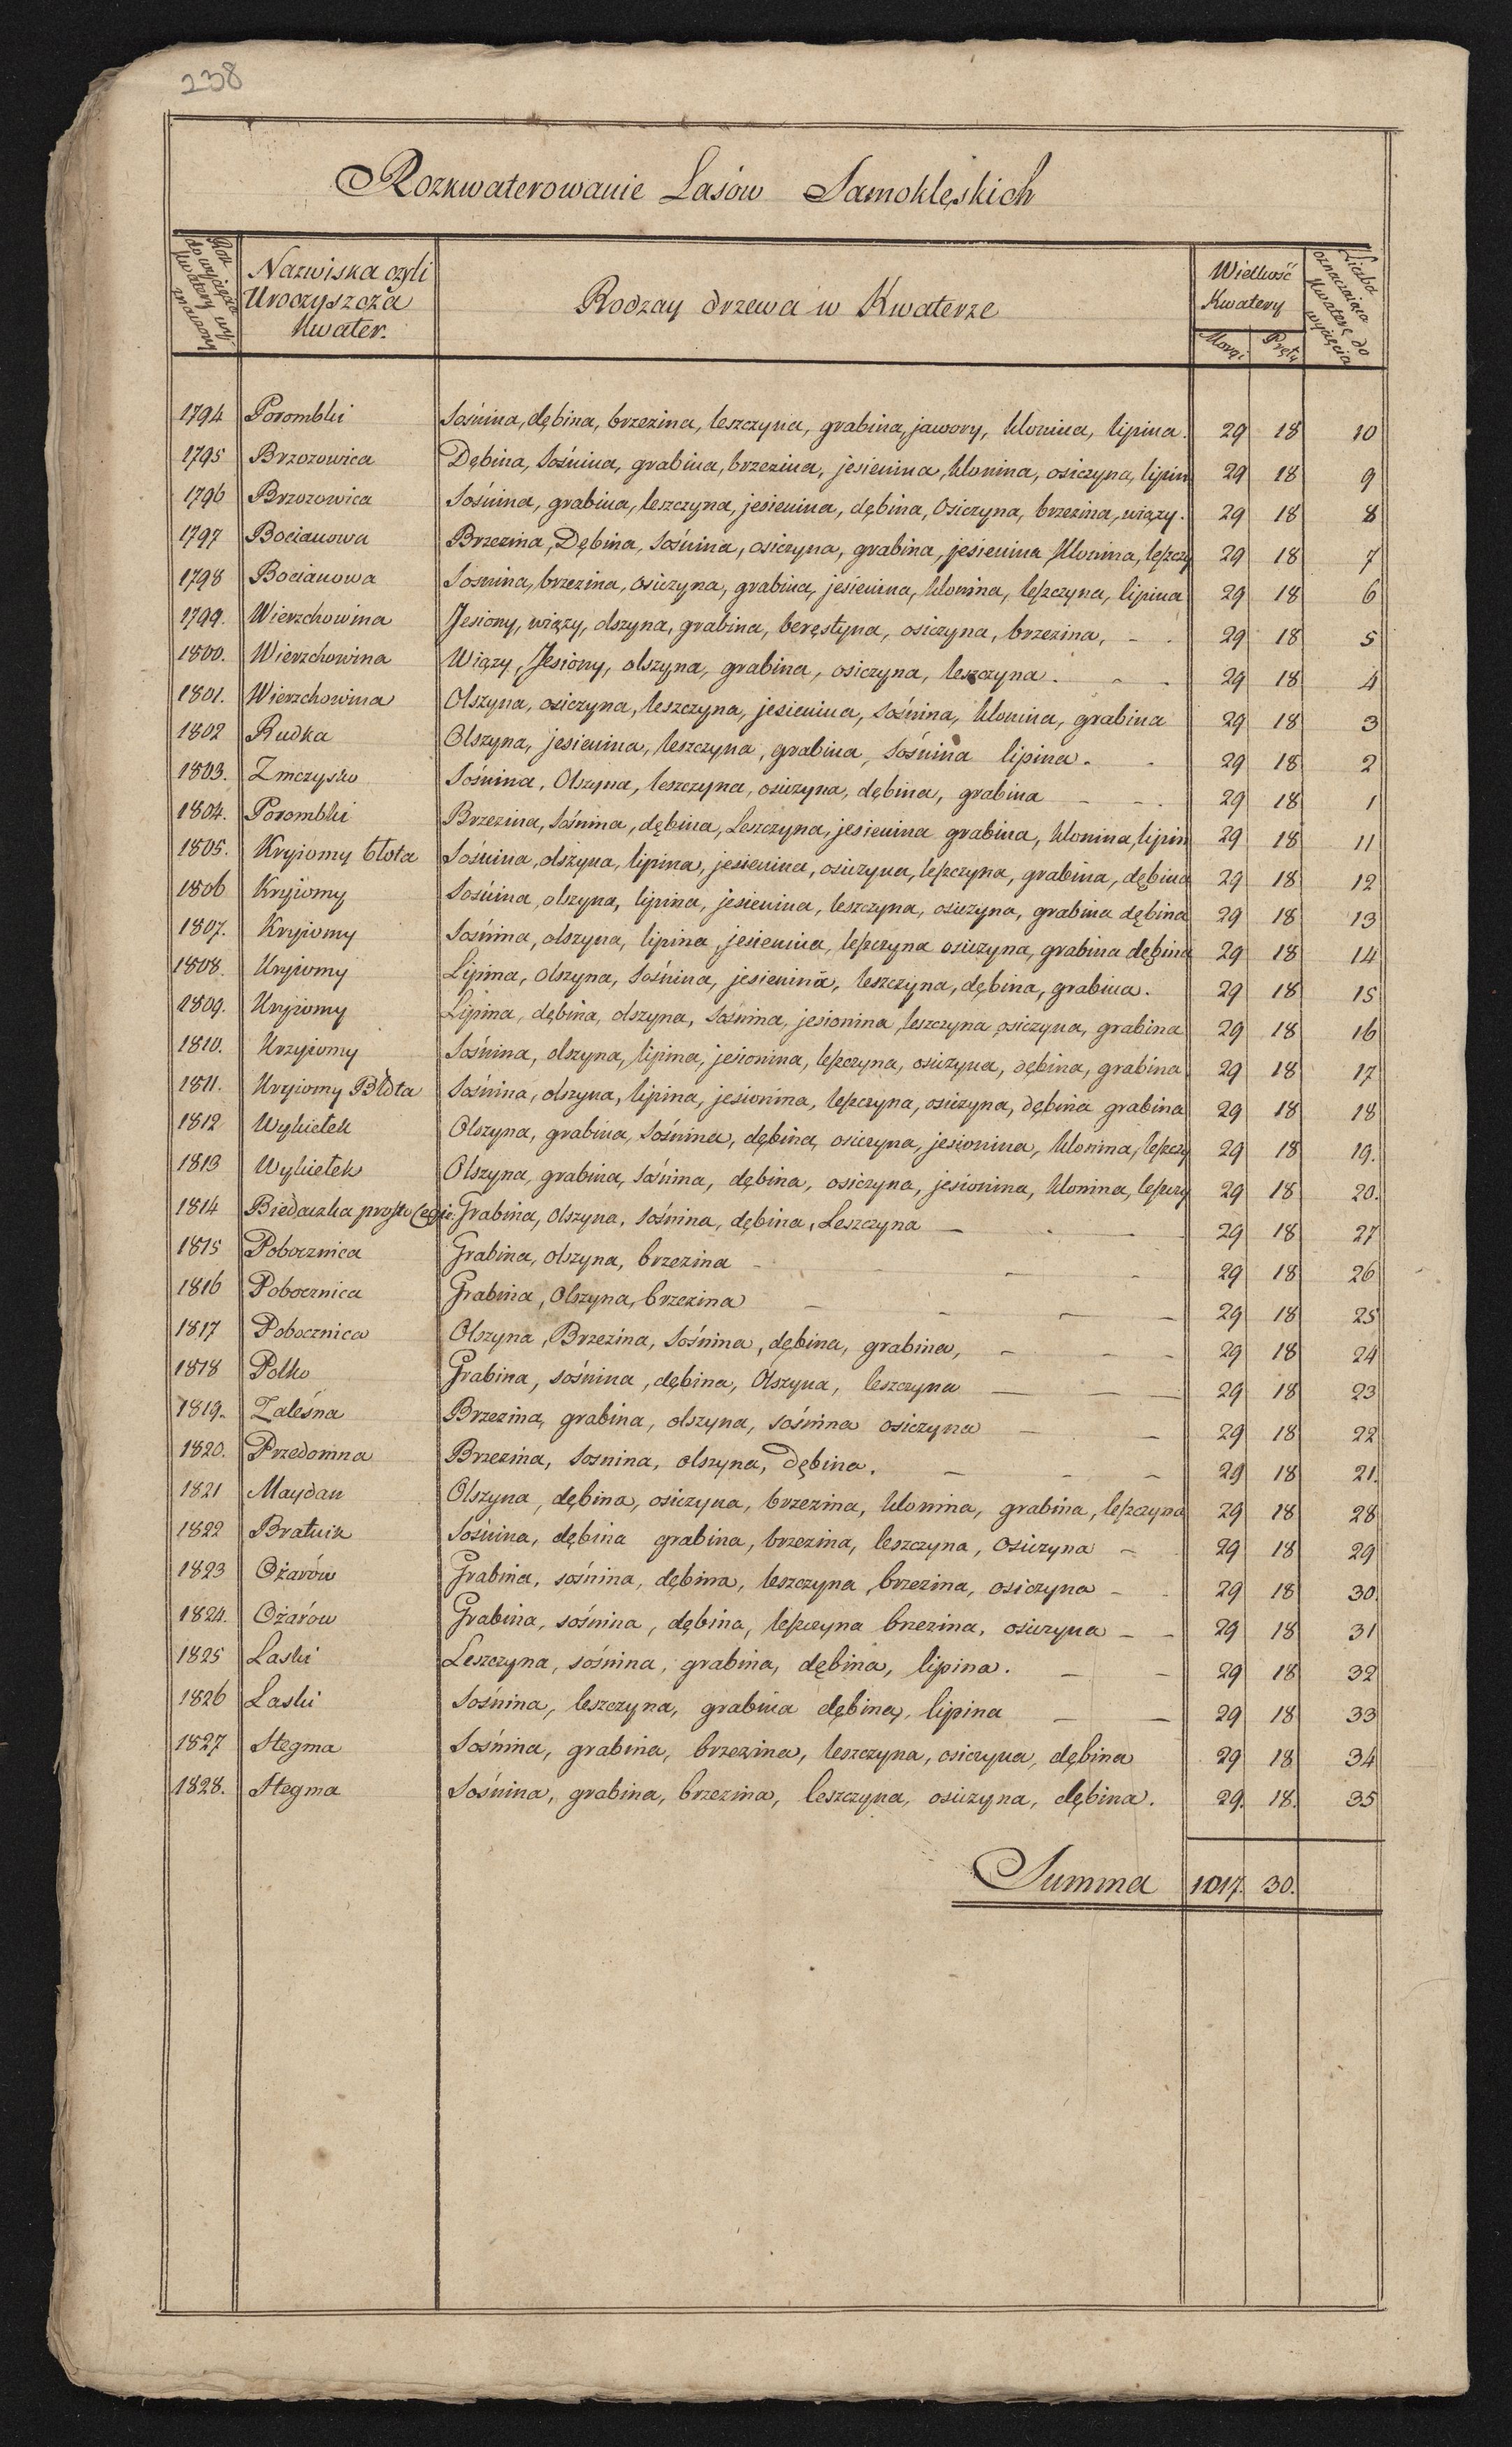 238
Rozkwaterowanie Lasów Samoklęskich
Rok do wyjęcia kwatery wyznaczony
Nazwiska czyli
Uroczyszcza
Kwater.
Rodzay drzewa w Kwaterze
Wielkość
Kwatery
Morgi Pręty
Liczba oznaczaiąca Kwaterę do wyięcia
1794 Porombki Sośnina, dębina, brzezina, leszczyna, grabina, jawory, klonina, lipina. 29 18 10
1795 Brzozowica Dębina, Sośnina, grabina, brzezina, jesienina, klonina, osiczyna, lipin 29 18 9
1796 Brzozowica Sośnina, grabina, leszczyna, jesienina, dębina, Osiczyna, brzezina, wiązy. 29 18 8
1797 Bocianowa Brzezina, Dębina, Sośnina, osiczyna, grabina, jesienina, Klonina, leszczy 29 18 7
1798 Bocianowa Sosnina, brzezina, osiczyna, grabina, jesienina, klonina, leszczyna, lipina 29 18 6
1799. Wierzchowina Jesiony, wiązy, olszyna, grabina, beręstyna, osiczyna, brzezina, - . 29 18 5
1800. Wierzchowina Wiązy, Jesiony, olszyna, grabina, osiczyna, leszczyna. - - 29 18 4
1801. Wierzchowina Olszyna, osiczyna, leszczyna, jesienina, Sośnina, klonina, grabina 29 18 3
1802 Rudka Olszyna, jesienina, leszczyna, grabina, Sośnina lipina. . 29 18 2
1803. Zmczysko Sośnina, Olszyna, leszczyna, osiczyna, dębina, grabina - - . 29 18 1
1804. Porombki Brzezina, Sośnina, dębina, Leszczyna, jesienina grabina, klonina, lipin 29 18 11
1805. Kryiomy błota Sośnina, olszyna, lipina, jesienina, osiczyna, leszczyna, grabina, dębina 29 18 12
1806 Kryiomy Sośnina, olszyna, lipina, jesienina, leszczyna, osiczyna, grabina dębina 29 18 13
1807. Kryiomy Sośnina, olszyna, lipina, jesienina, leszczyna osiczyna, grabina dębina 29 18 14
1808. Kryiomy Lipina, Olszyna, Sośnina, jesienina, leszczyna, dębina, grabina. 29 18 15
1809. Kryiomy Lipina, dębina, olszyna, Sosnina, jesionina, leszczyna, osiczyna, grabina 29 18 16
1810. Krzyiomy Sośnina, olszyna, lipina, jesionina, leszczyna, osiczyna, dębina, grabina 29 18 17
1811. Kryiomy Błota Sośnina, olszyna, lipina, jesionina, leszczyna, osiczyna, dębina grabina 29 18 18
1812 Wykietek Olszyna, grabina, Sośnina, dębina, osiczyna, jesionina, klonina, leszczy 29 18 19.
1813 Wykietek Olszyna, grabina, Sośnina, dębina, osiczyna, jesionina, klonina, leszczy 29 18 20.
1814 Biedaczka prosto Grabina, olszyna, Sośnina, dębina, Leszczyna - . - 29 18 27
1815 Pobocznica Grabina, olszyna, brzezina - - - 29 18 26
1816 Pobocznica Grabina, Olszyna, brzezina - - - - 29 18 25
1817 Pobocznica Olszyna, Brzezina, Sośnina, dębina, grabina, - - - 29 18 24
1818 Polko Grabina, sośnina, dębina, Olszyna, leszczyna - - - 29 18 23
1819. Zaleśna Brzezina, grabina, olszyna, sośnina osiczyna - - 29 18 22
1820. Przedomna Brzezina, Sosnina, olszyna, Dębina. - - - 29 18 21.
1821 Maydan Olszyna, dębina, osiczyna, brzezina, klonina, grabina, leszczyna 29 18 28
1822 Bratnik Sośnina, dębina grabina, brzezina, leszczyna, Osiczyna - 29 18 29
1823 Ożarów Grabina, sośnina, dębina, leszczyna, brzezina, osiczyna - 29 18 30.
1824. Ożarów Grabina, sośnina, dębina, leszczyna brzezina, osiczyna - - 29 18 31
1825 Laski Leszczyna, sośnina, grabina, dębina, lipina. - - 29 18 32
1826 Laski Sośnina, leszczyna, grabina dębina, lipina - - 29 18 33
1827 Stegma Sośnina, grabina, brzezina, leszczyna, osiczyna, dębina 29 18 34
1828. Stegma Sośnina, grabina, brzezina, leszczyna, osiczyna, dębina. 29. 18. 35
Summa 1017. 30.